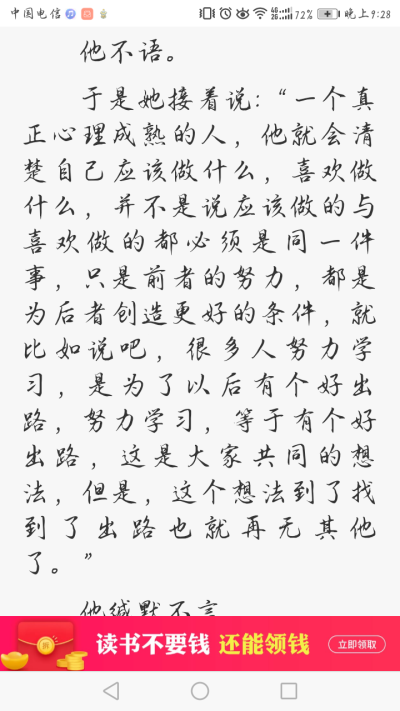 中国电信 4G 2G 72% 晚上9:28
他不语。
于是她接着说：“一个真
正心理成熟的人，他就会清
楚自己应该做什么，喜欢做
什么，并不是说应该做的与
喜欢做的都必须是同一件
事，只是前者的努力，都是
为后者创造更好的条件，就
比如说吧，很多人努力学
习，是为了以后有个好出
路，努力学习，等于有个好
出路，这是大家共同的想
法，但是，这个想法到了找
到了出路也就再无其他
了。”
他缄默不言
拆 读书不要钱 还能领钱 立即领取